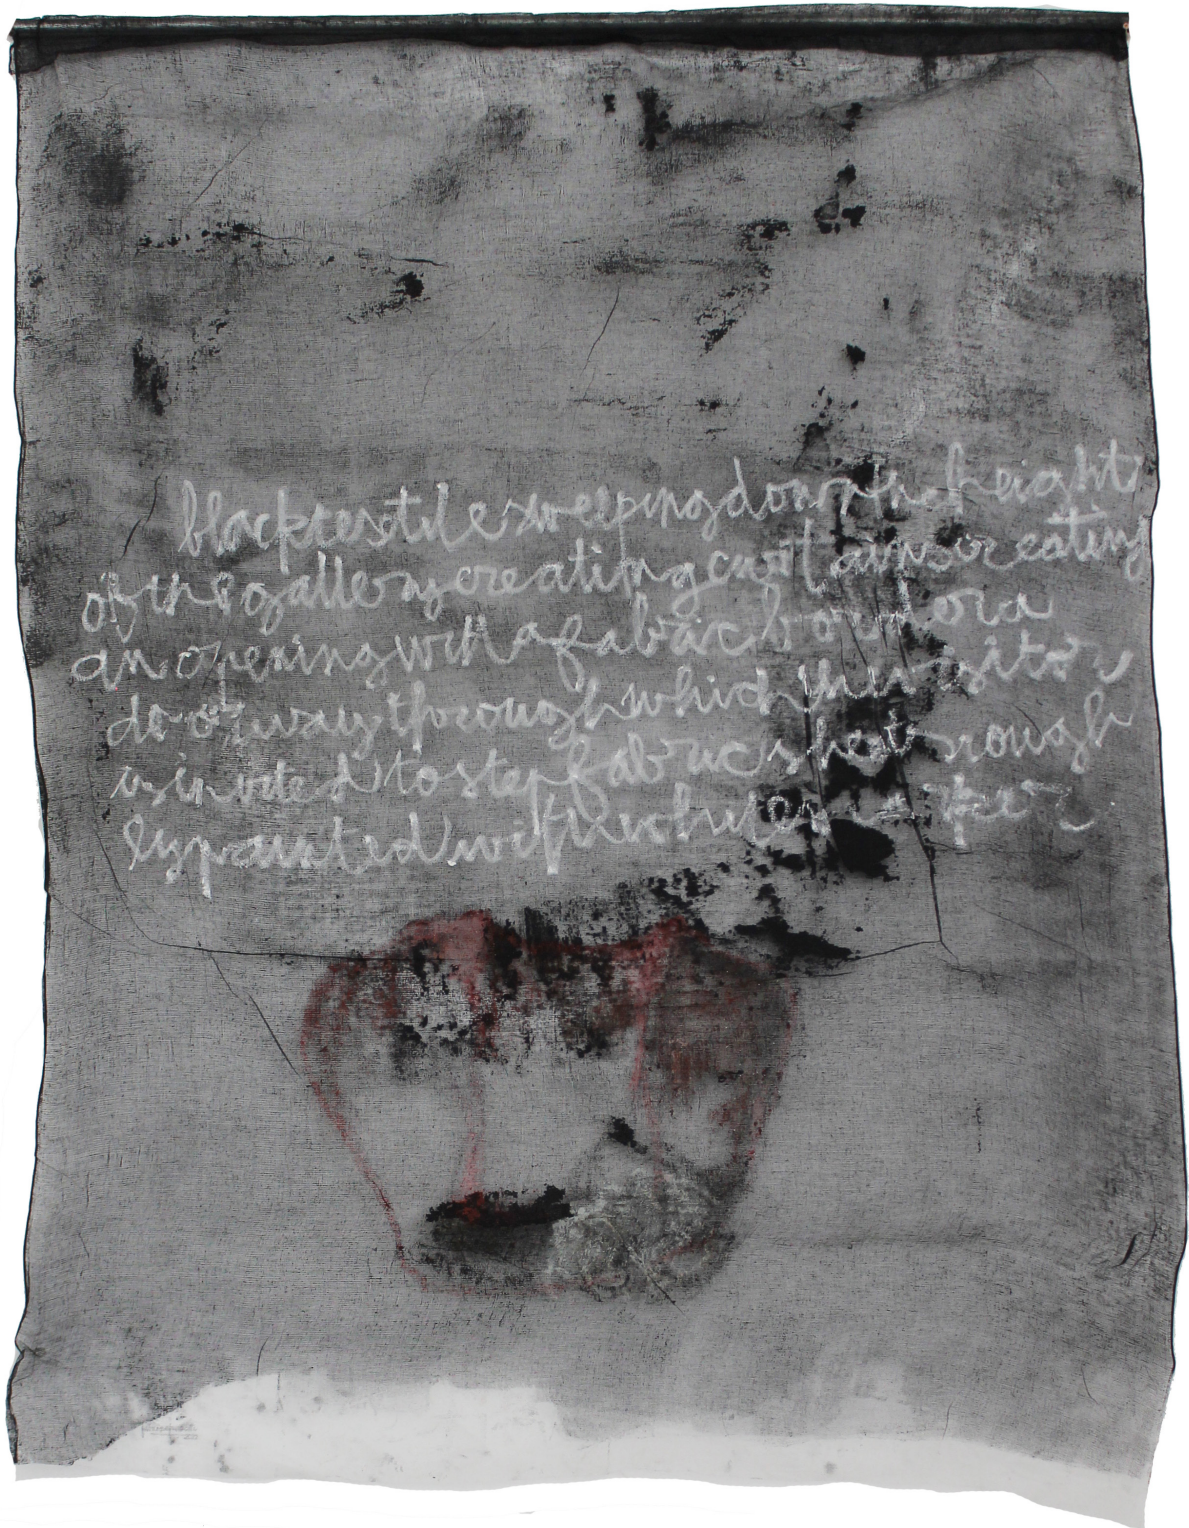 black textile sweeping down the height
of the gallery creating curtains creating
an opening with a fabric border
doorway through which the visitor
is invited to step fabric sheet rough
ly painted with white